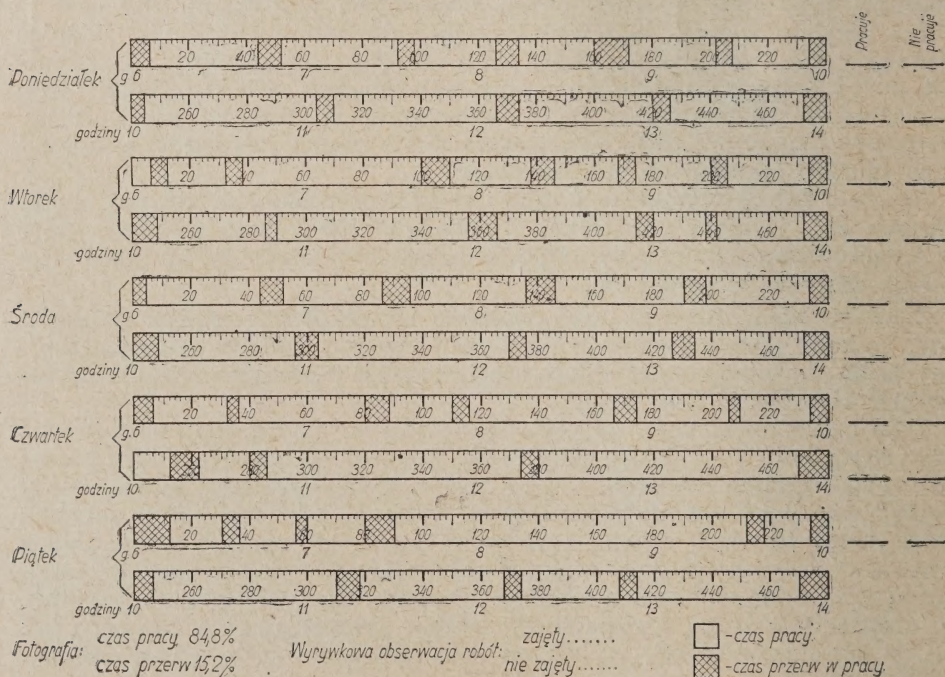 Pracuje Nie pracuje
Poniedziałek
20 40 60 80 100 120 140 160 180 200 220
g. 6 7 8 9 10
260 280 300 320 340 360 380 400 420 440 460
godziny 10 11 12 13 14
Wtorek
20 40 60 80 100 120 140 160 180 200 220
g. 6 7 8 9 10
260 280 300 320 340 360 380 400 420 440 460
godziny 10 11 12 13 14
Środa
20 40 60 80 100 120 140 160 180 200 220
g. 6 7 8 9 10
260 280 300 320 340 360 380 400 420 440 460
godziny 10 11 12 13 14
Czwartek
20 40 60 80 100 120 140 160 180 200 220
g. 6 7 8 9 10
260 280 300 320 340 360 380 400 420 440 460
godziny 10 11 12 13 14
Piątek
20 40 60 80 100 120 140 160 180 200 220
g. 6 7 8 9 10
260 280 300 320 340 360 380 400 420 440 460
godziny 10 11 12 13 14
Fotografia: czas pracy 84,8%
czas przerw 15,2%
Wyrywkowa obserwacja robót: zajęty.......
nie zajęty.......
-czas pracy
-czas przerw w pracy.